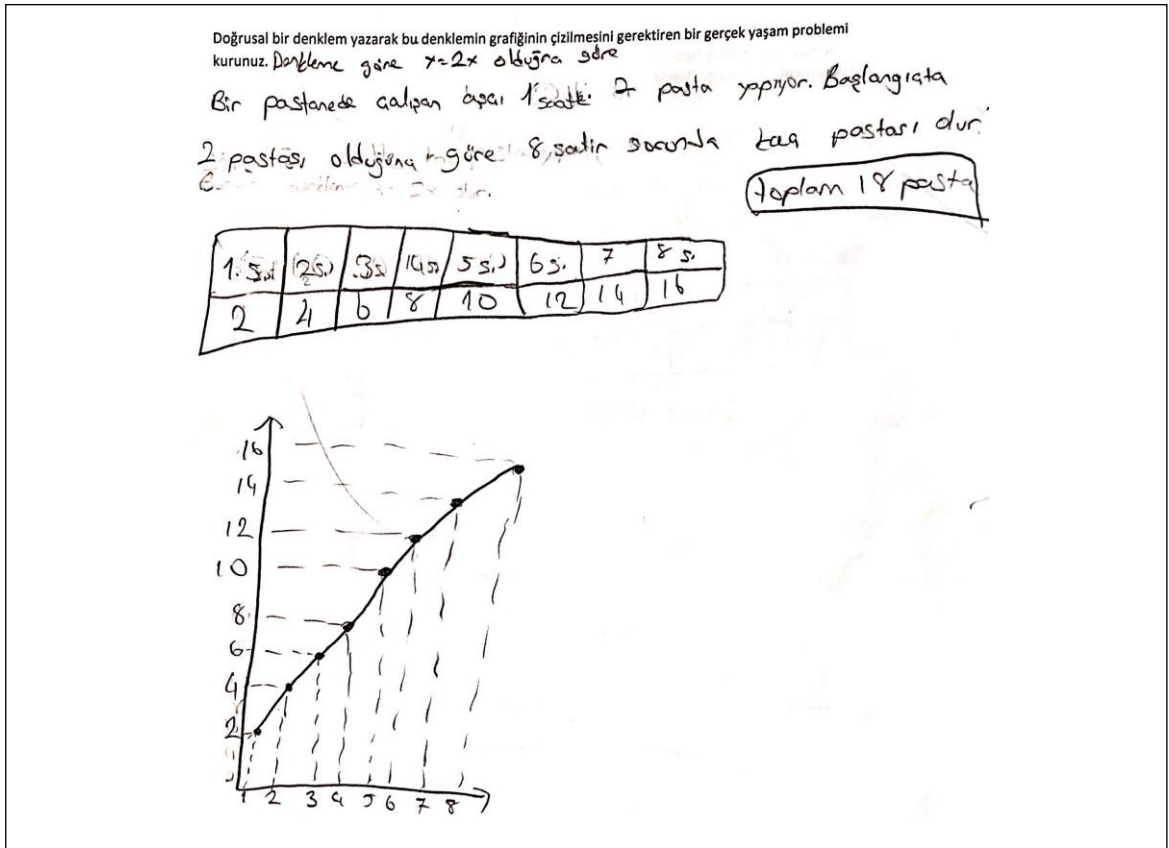 Doğrusal bir denklem yazarak bu denklemin grafiğinin çizilmesini gerektiren bir gerçek yaşam problemi
kurunuz. Denkleme göre x=2x olduğra göre
Bir pastanede çalışan aşçı 1 saatte 2 pasta yapıyor. Başlangıçta
2 pastası olduğuna göre 8 satin sorunda kaç pastası olur
toplam 18 pasta
1. S. (2s.) 3s (4s) 5 s.) 6s. 7 8 s.
2 4 6 8 10 12 14 16
16
14
12
10
8
6
4
2
1 2 3 4 5 6 7 8